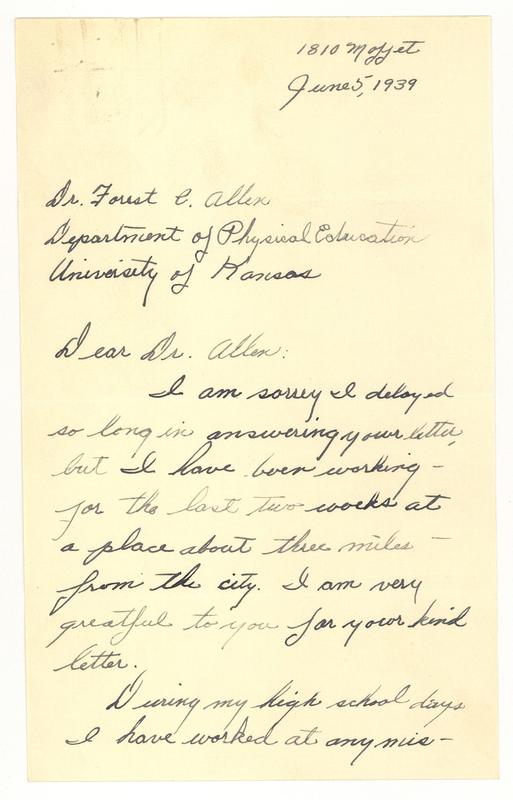 1810 Moffet
June 5, 1939
Dr. Forest C. Allen
Department of Physical Education
University of Kansas
Dear Dr. Allen:
I am sorrey I delayed
so long in answering your letter,
but I have been working -
for the last two weeks at
a place about three miles -
from the city. I am very
greatful to you for your kind
letter.
During my high school days
I have worked at any mis-